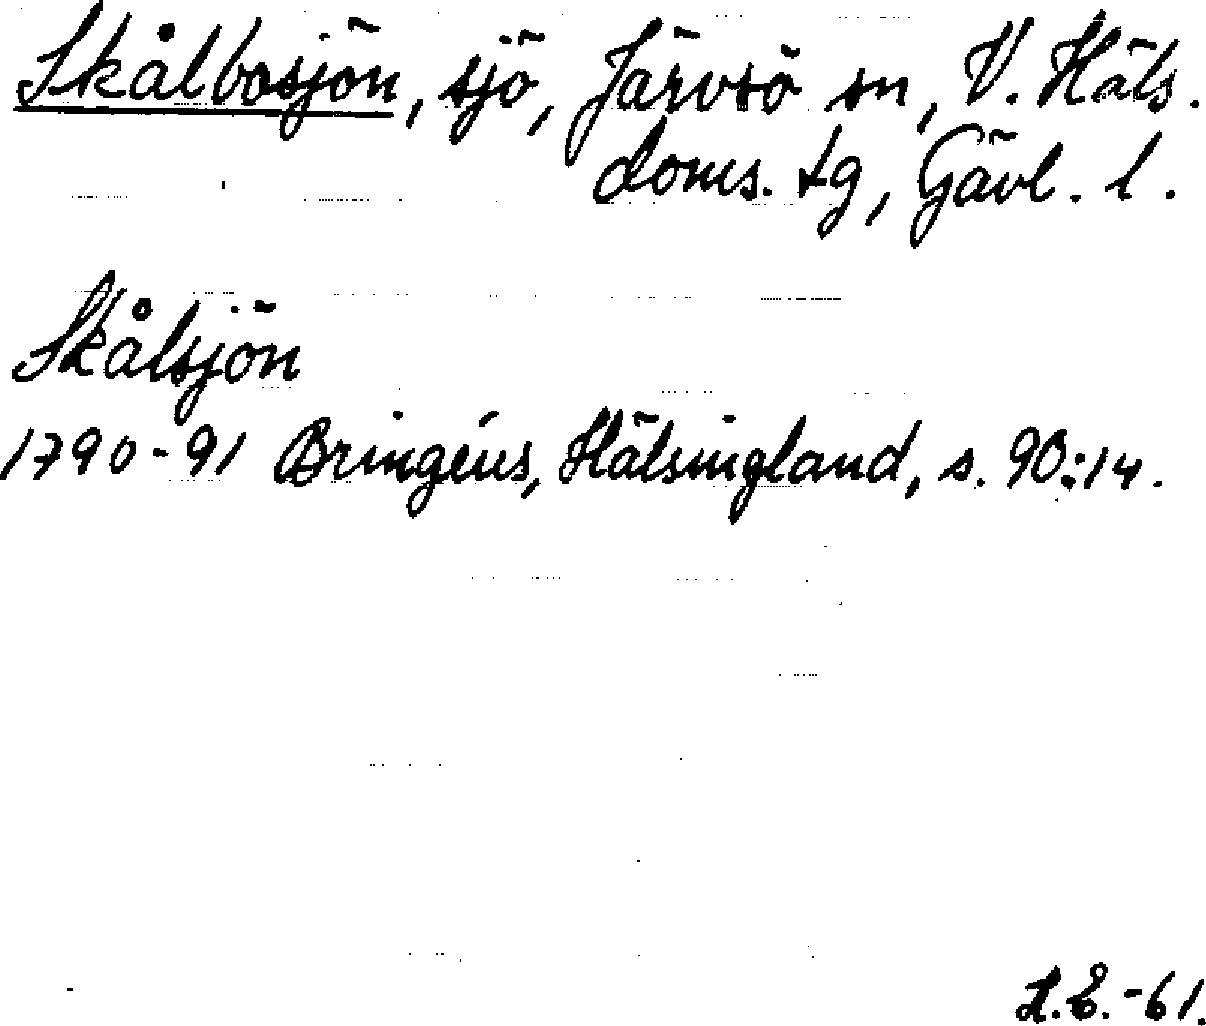 Skålbosjön, sjö, Järvsö sn, V. Häls.
doms. tg, Gävl. l.
Skålsjön
1790-91 Bringéus, Hälsingland, s. 90:14.
-61.